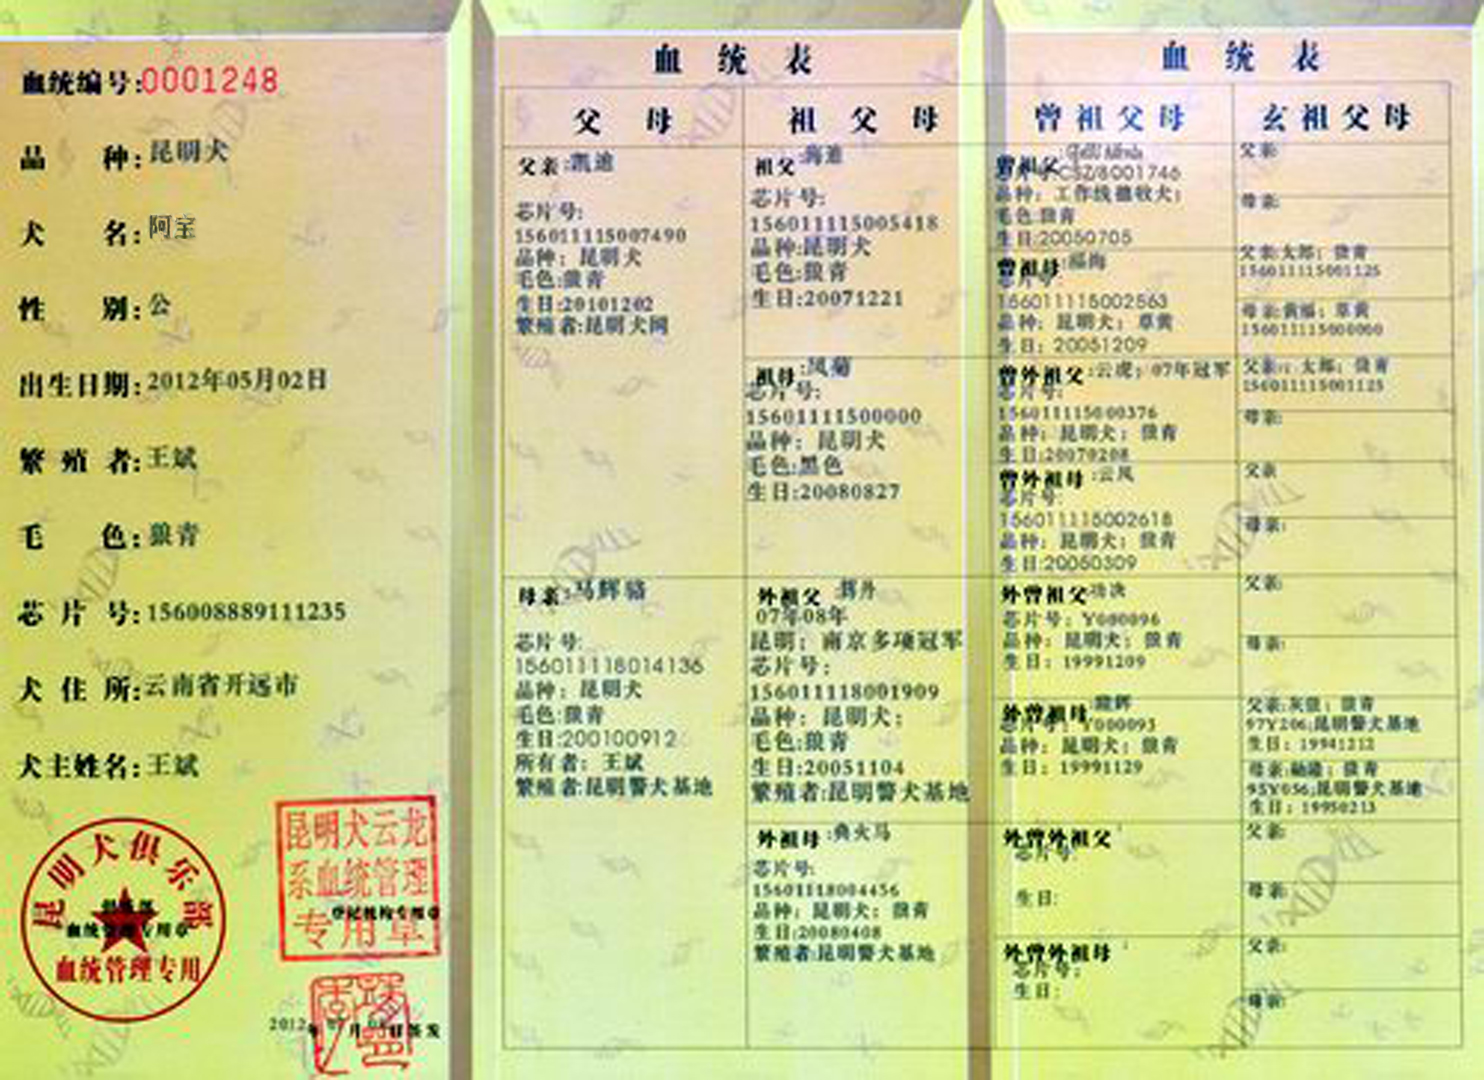 血统编号:0001248
品 种:昆明犬
犬 名:阿宝
性 别:公
出生日期:2012年05月02日
繁殖者:王斌
毛 色:狼青
芯片号:156008889111235
犬住所:云南省开远市
犬主姓名:王斌
昆明犬俱乐部
血统管理专用章
血统管理专用
昆明犬云龙
系血统管理
专用章
登记机构专用章
血统表
父母
祖父母
父亲:凯迪
芯片号:
156011115007490
品种:昆明犬
毛色:狼青
生日:20101202
繁殖者:昆明犬网
母亲:马辉骆
芯片号:
156011118014136
品种:昆明犬
毛色:狼青
生日:200100912
所有者:王斌
繁殖者:昆明警犬基地
祖父:海迪
芯片号:
156011115005418
品种:昆明犬
毛色:狼青
生日:20071221
祖母:凤菊
芯片号:
15601111500000
品种:昆明犬
毛色:黑色
生日:20080827
外祖父:辉丹
07年08年
昆明;南京多项冠军
芯片号:
156011118001909
品种:昆明犬;
毛色:狼青
生日:20051104
繁殖者:昆明警犬基地
外祖母:典火马
芯片号:
15601118004456
品种:昆明犬;狼青
生日:20080408
繁殖者:昆明警犬基地
血统表
曾祖父母
玄祖父母
曾祖父:
芯片号:CSZ/8001746
品种:工作线德牧犬;
毛色:狼青
生日:20050705
曾祖母:福梅
芯片号:
156011115002563
品种:昆明犬;草黄
生日:20051209
曾外祖父:云虎;07年冠军
芯片号:
156011115000376
品种:昆明犬;狼青
生日:20070208
曾外祖母:云凤
芯片号:
156011115002618
品种:昆明犬;狼青
生日:20050309
外曾祖父:功决
芯片号:Y080096
品种:昆明犬;狼青
生日:19991209
外曾祖母:
芯片号:Y000093
品种:昆明犬;狼青
生日:19991129
外曾外祖父:
芯片号:
生日:
外曾外祖母:
芯片号:
生日:
父亲:
母亲:
父亲:太郎;狼青
156011115001125
母亲:黄福;草黄
156011115000000
父亲:太郎;狼青
156011115001125
母亲:
父亲:
母亲:
父亲:
母亲:
父亲:灰狼;狼青
97Y206;昆明警犬基地
生日:19941212
母亲:狼青
95Y056;昆明警犬基地
生日:19950213
父亲:
母亲:
父亲:
母亲: